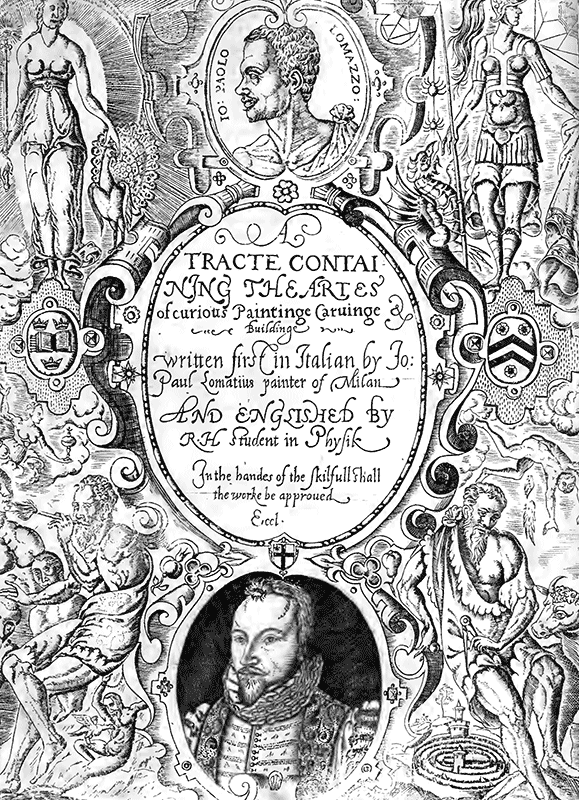 IO: PAOLO LOMAZZO:
A
TRACTE CONTAI
NING THE ARTES
of curious Paintinge Caruinge &
Buildinge
written first in Italian by Jo:
Paul Lomatius painter of Milan
AND ENGLISHED BY
R.H. Student in Physik
In the handes of the skilfull shall
the worke be approved
Eccl.